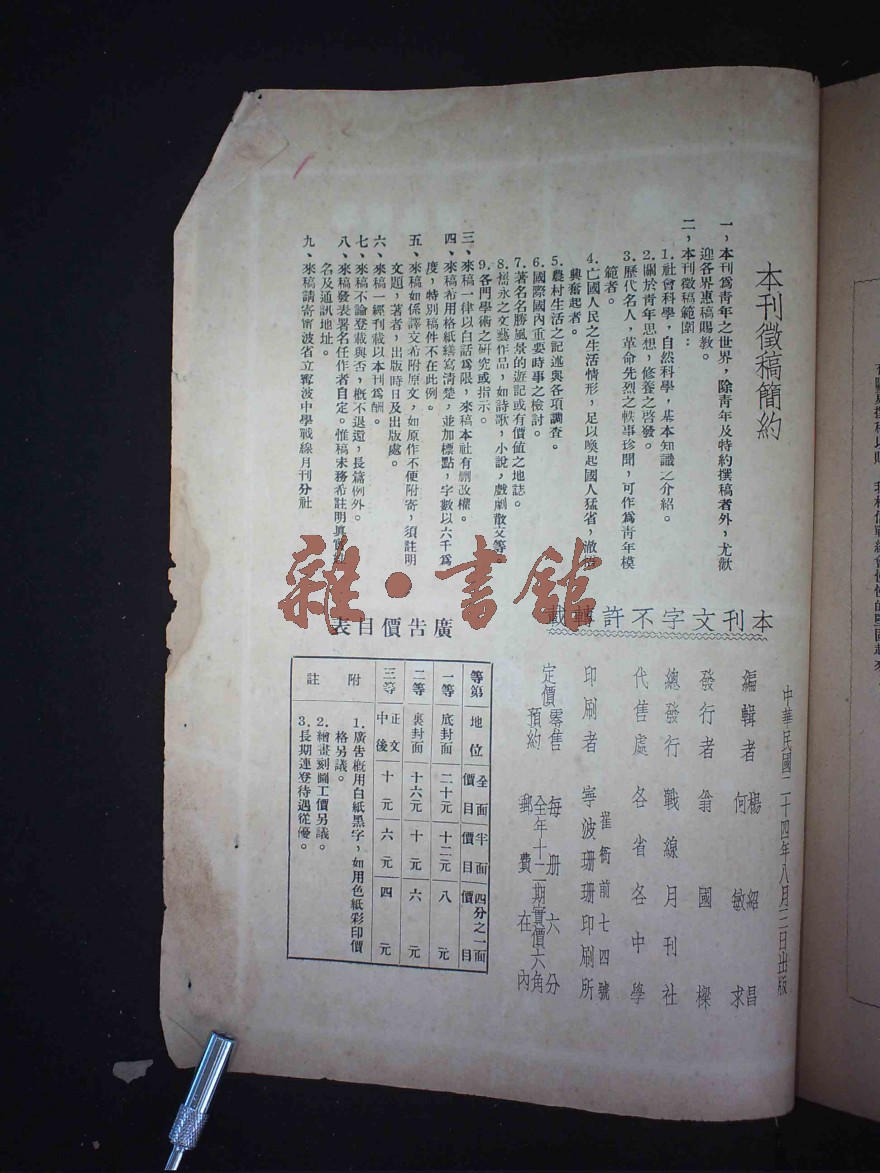 本刊徵稿簡約
一，本刊爲靑年之世界，除靑年及特約撰稿者外，尤歡
迎各界惠稿賜敎。
二，本刊徵稿範圍：
1.社會科學，自然科學，基本知識之介紹。
2.關於靑年思想，修養之啓發。
3.歷代名人，革命先烈之軼事珍聞，可作爲靑年模
範者。
4.亡國人民之生活情形，足以喚起國人猛省，澈悟
興奮起者。
5.農村生活之記述與各項調查。
6.國際國內重要時事之檢討。
7.著名名勝風景的遊記或有價值之地誌。
8.雋永之文藝作品，如詩歌，小說，戲劇散文等。
9.各門學術之硏究或指示。
三、來稿一律以白話爲限，來稿本社有刪改權。
四、來稿希用格紙繕寫淸楚，並加標點，字數以六千爲
度，特別稿件不在此例。
五、來稿如係譯文希附原文，如原作不便附寄，須註明
文題，著者，出版時日及出版處。
六、來稿一經刊載以本刊爲酬。
七、來稿不論登載與否，槪不退還，長篇例外。
八、來稿發表署名任作者自定。惟稿末務希註明眞實姓
名及通訊地址。
九、來稿請寄甯波省立甯波中學戰線月刊分社
本刊文字不許轉載
中華民國二十四年八月二日出版
編輯者 楊紹昌
何敏求
發行者 翁國樑
總發行 戰線月刊社
代售處 各省各中學
崔衙前七四號
印刷者 寧波珊珊印刷所
定價 零售 每册六分
預約 全年十二期實價六角
郵費在內
廣告價目表
等第 地位 全面價目 半面價目 四分之一面價目
一等 底封面 二十元 十二元 八元
二等 裏封面 十六元 十元 六元
三等 正文中後 十元 六元 四元
附註
1.廣告槪用白紙黑字，如用色紙彩印價
格另議。
2.繪畫刻圖工價另議。
3.長期連登待遇從優。
雜·書館